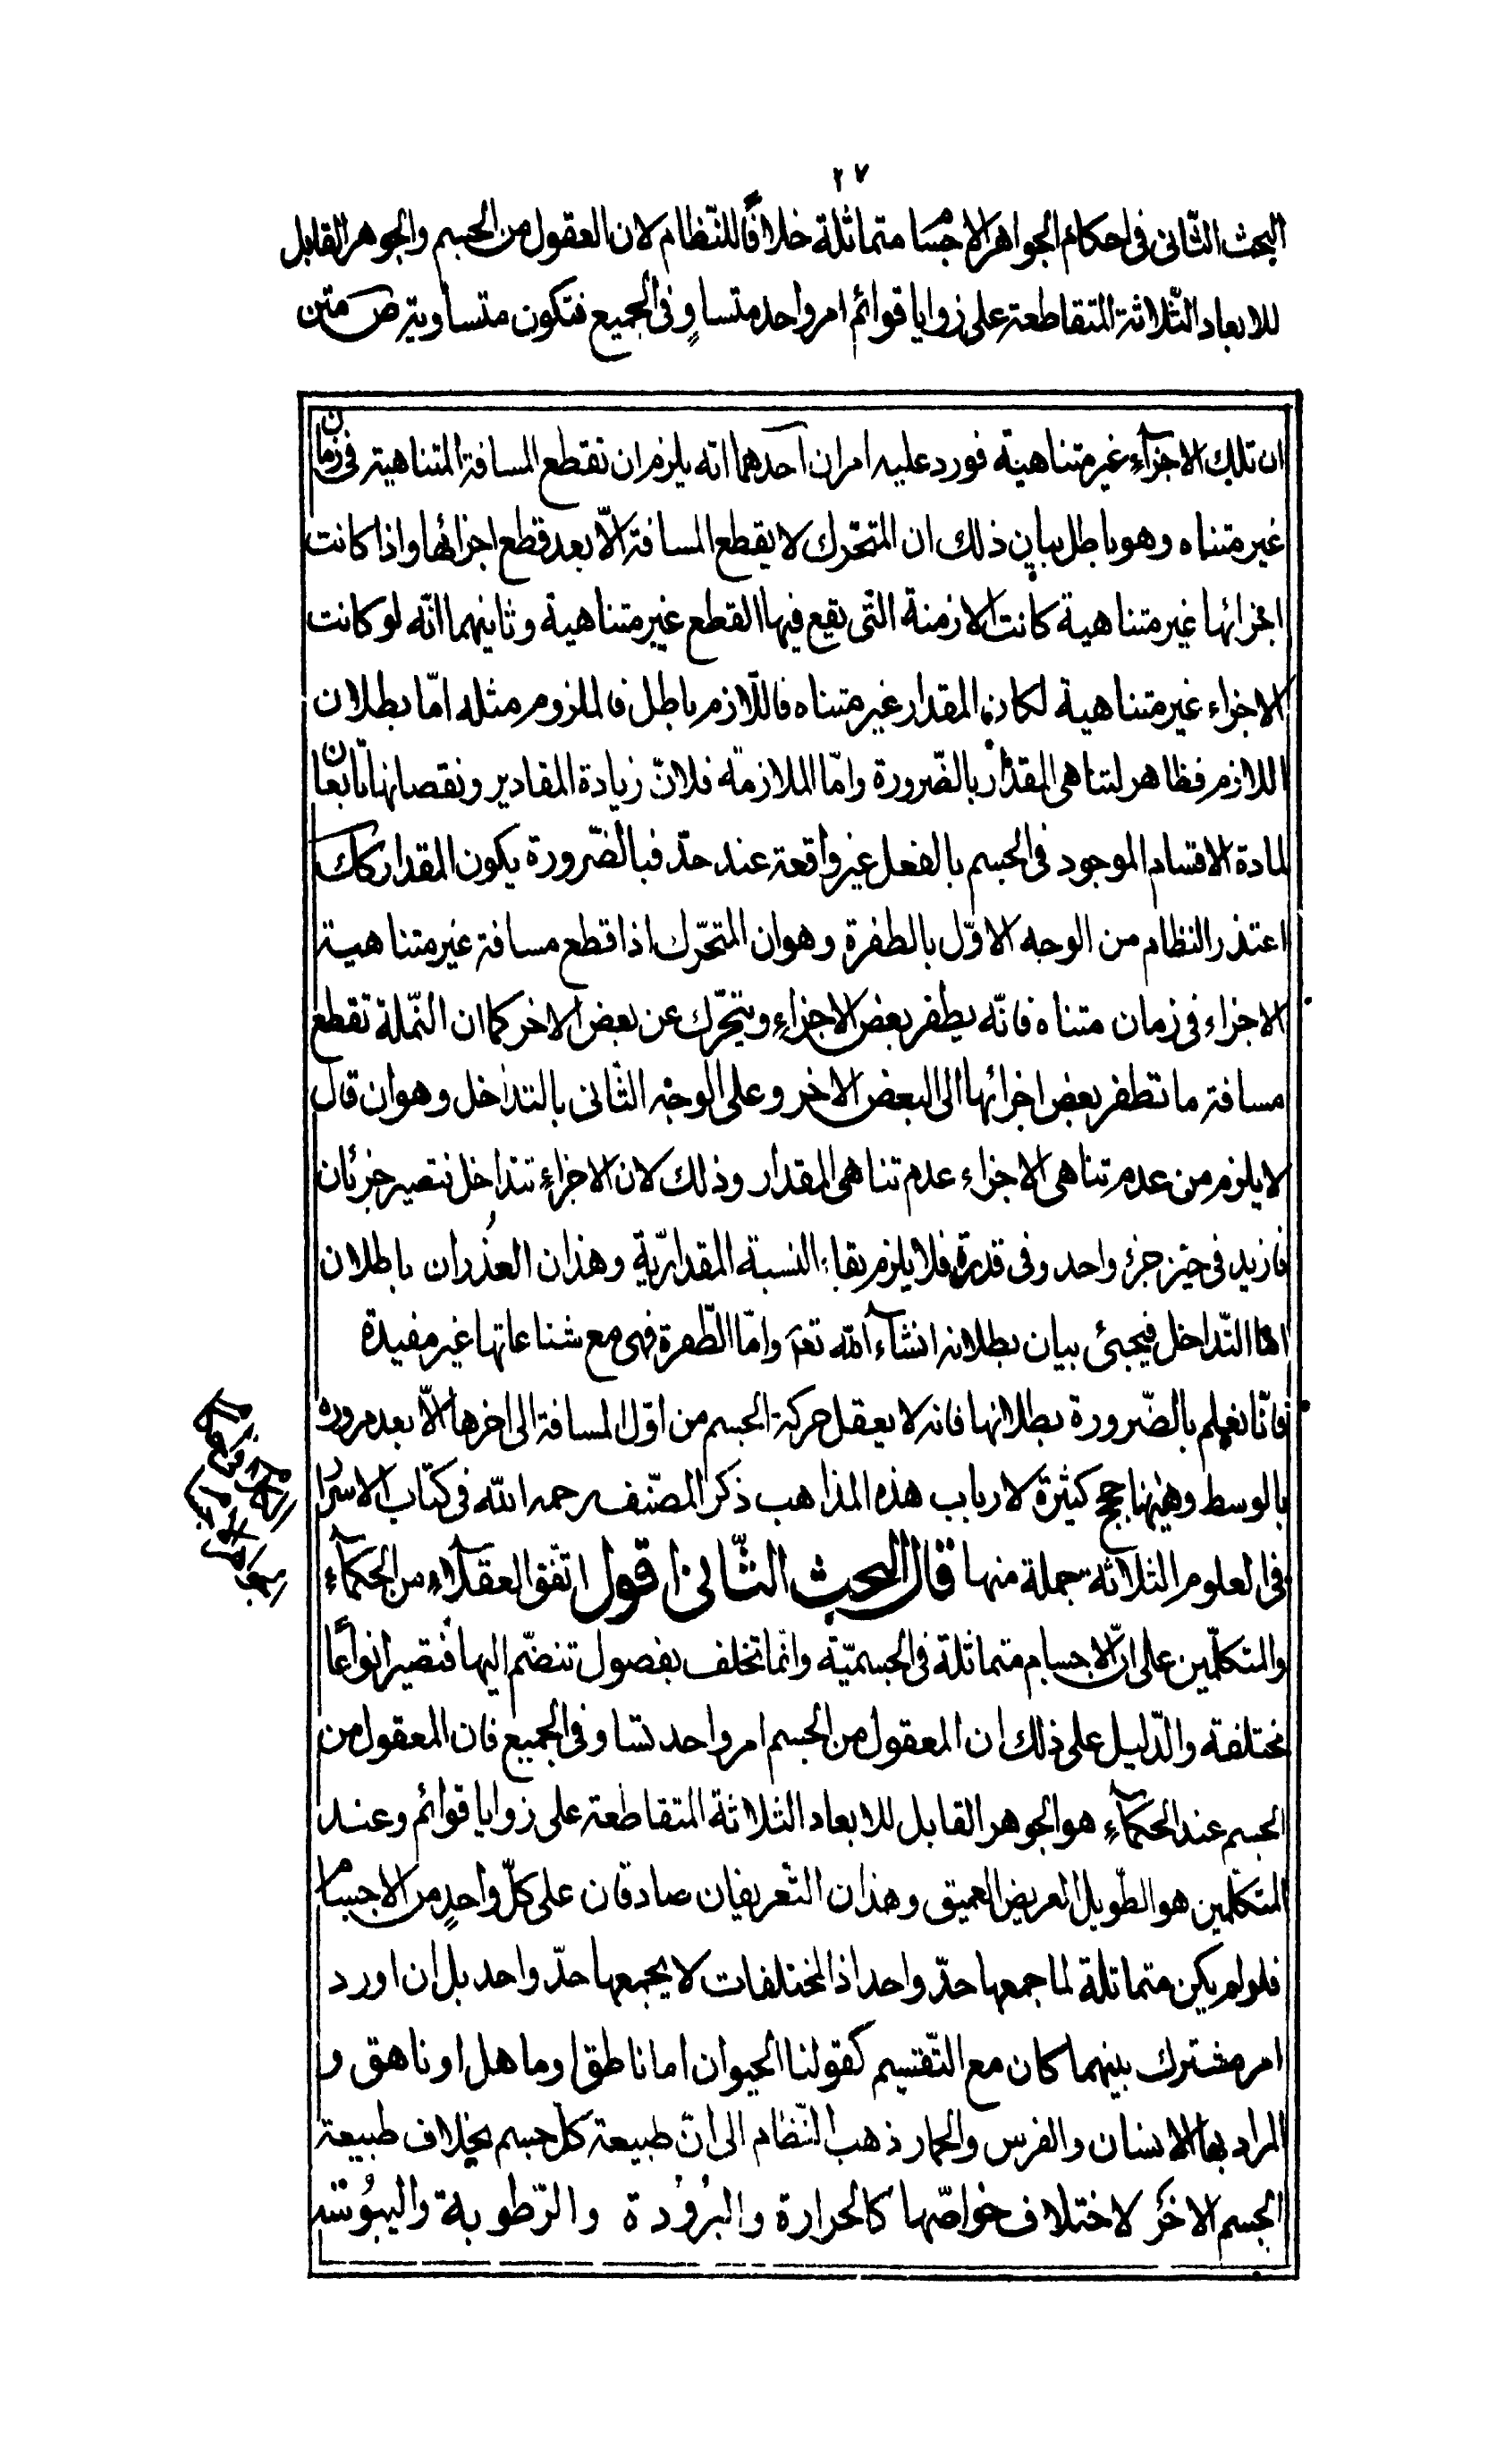 ٢٧
البحث الثّانى فى احكام الجواهر الاجسام متماثلة خلافًا للنّظام لان العقول من الجسم والجوهر القابل
للابعاد الثّلاثة المتقاطعة على زوايا قوائم امر واحد متساوٍ فى الجميع فتكون متساوية ص متن
ان تلك الاجزآء غير متناهية فورد عليه امران آحدهما انه يلزم ان تقطع المسافة المتناهية فى زمان
غير متناه وهو باطل بيان ذلك ان المتحّرك لا يقطع المسافة الّا بعد قطع اجزائها واذا كانت
اجزائها غير متناهية كانت الازمنة التّى يقع فيها القطع غير متناهية وثانيهما انّه لو كانت
الاجزاء غير متناهية لكان المقدار غير متناه فاللّازم باطل فالملزوم مثله امّا بطلان
اللازم فظاهر لتناهى المقدار بالضّرورة وامّا الملازمة فلانّ زيادة المقادير ونقصانها تابعان
لمادة الاقسام الموجود فى الجسم بالفعل غير واقعة عند حدّ فبالضّرورة يكون المقدار كك
اعتذر النظام من الوجه الاوّل بالطفرة وهو ان المتحّرك اذا قطع مسافة غير متناهية
الاجزاء فى زمان متناه فانّه يطفر بعض الاجزاء ويتحّرك عن بعض الاخر كما ان النّملة تقطع
مسافة ما تطفر بعض اجزائها الى البعض الاخر وعلى الوجه الثّانى بالتداخل وهو ان قال
لا يلزم من عدم تناهى الاجزاء عدم تناهى المقدار وذلك لان الاجزاء تتداخل فتصير جزئان
فازيد فى حيّز جزئ واحد وفى قدره فلا يلزم بقاء النسبة المقداريّة وهذان العذران باطلان
امّا التّداخل فيجئى بيان بطلانه انشآء الله تعم وامّا الطّفرة فهى مع شناعاتها غير مفيدة
فانّا نعلم بالضّرورة بطلانها فانه لا يعقل حركة الجسم من اوّل المسافة الى اخرها الّا بعد مروره
بالوسط وهيهنا حجج كثيرة لارباب هذه المذاهب ذكر المصّنف رحمه الله فى كتاب الاسرار
فى العلوم الثلاثة جملة منها قال البحث الثّانى اقول اتّفق العقلاء من الحكمآء
والمتكلّمين على انّ الاجسام متماثلة فى الجسميّة وانّما تخلف بفصول تنضّم اليها فتصير انواعًا
مختلفة والدّليل على ذلك ان المعقول من الجسم امر واحد تساو فى الجميع فان المعقول من
الجسم عند الحكمآء هو الجوهر القابل للابعاد الثلاثة المتقاطعة على زوايا قوائم وعند
المتكلّمين هو الطّويل العريض العميق وهذان التّعريفان صادقان على كلّ واحدٍ من الاجسام
فلو لم يكن متماثلة لما جمعها حدّ واحد اذ المختلفات لا يجمعها حدّ واحد بل ان اورد
امر مشترك بينهما كان مع التّقسيم كقولنا الحيوان اما ناطق او ماهل او ناهق و
المراد بها الانسان والفرس والحمار ذهب النّظام الى انّ طبيعة كل جسم بخلاف طبيعة
الجسم الاخر لاختلاف خواصّها كالحرارة والبرودة والرّطوبة واليبوسة